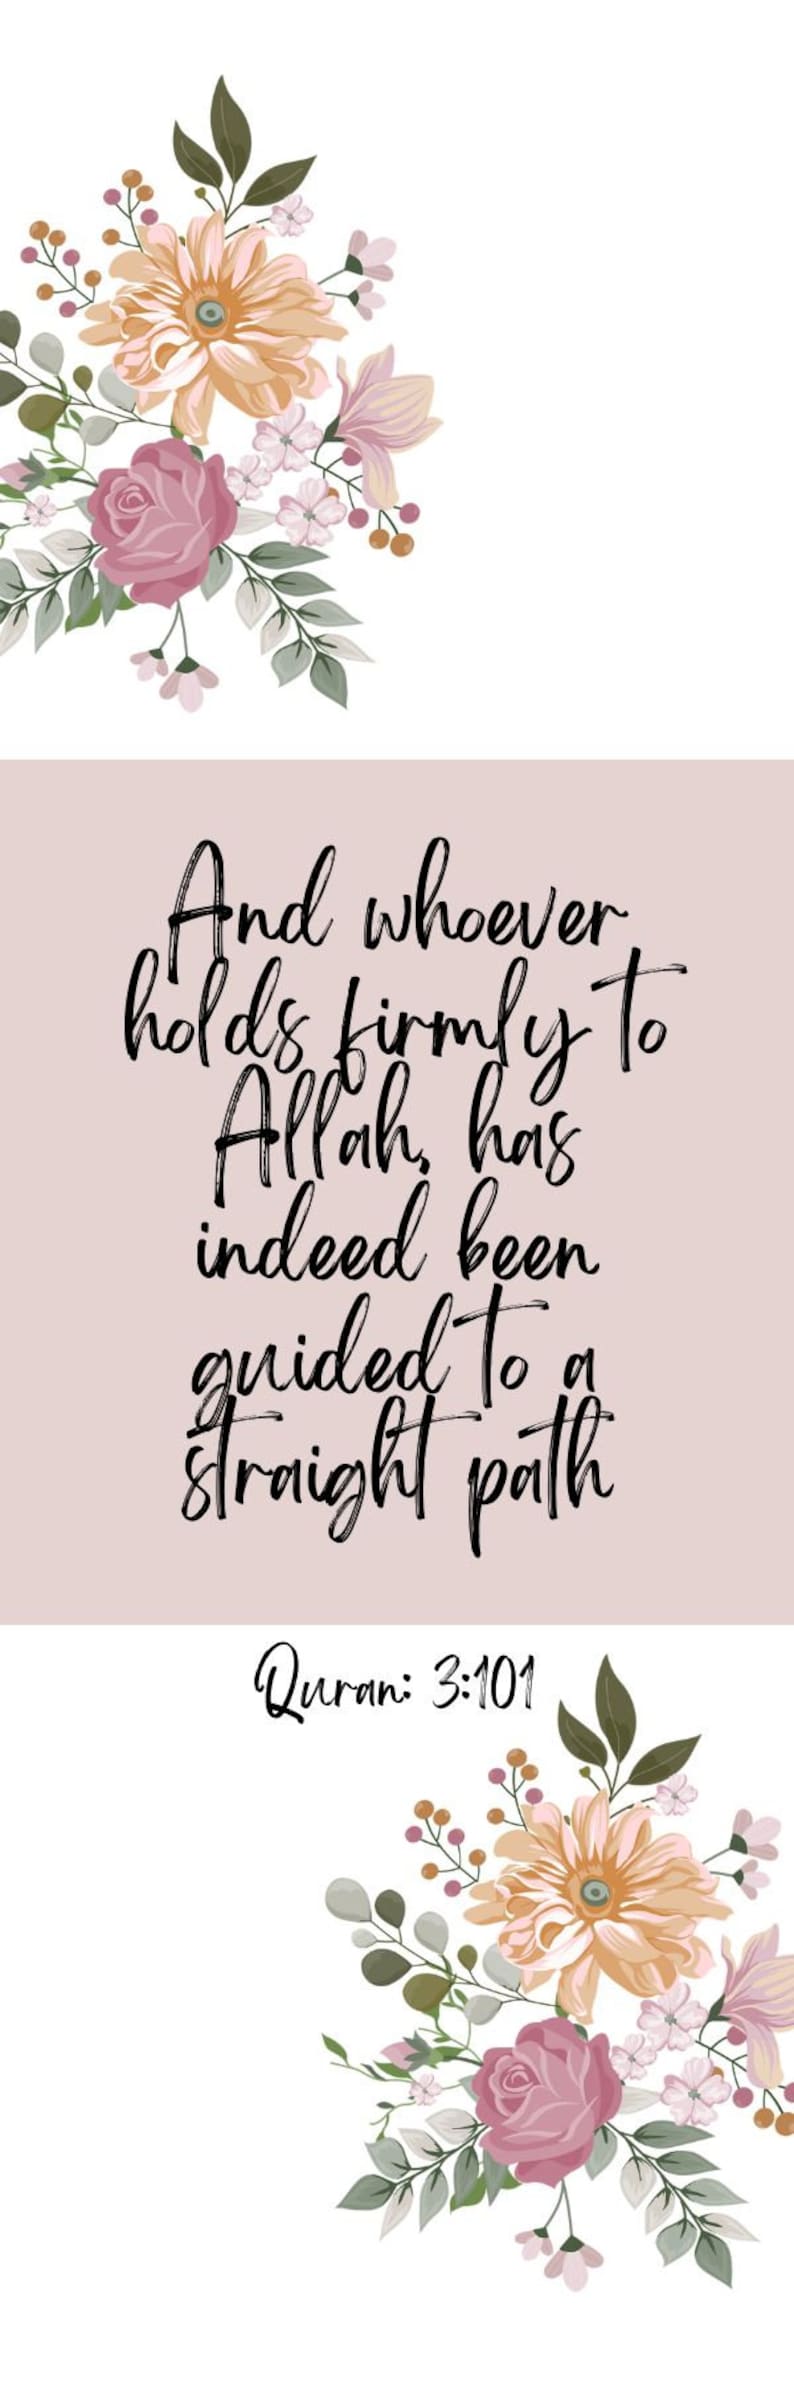 And whoever
holds firmly to
Allah, has
indeed been
guided to a
straight path
Quran: 3:101